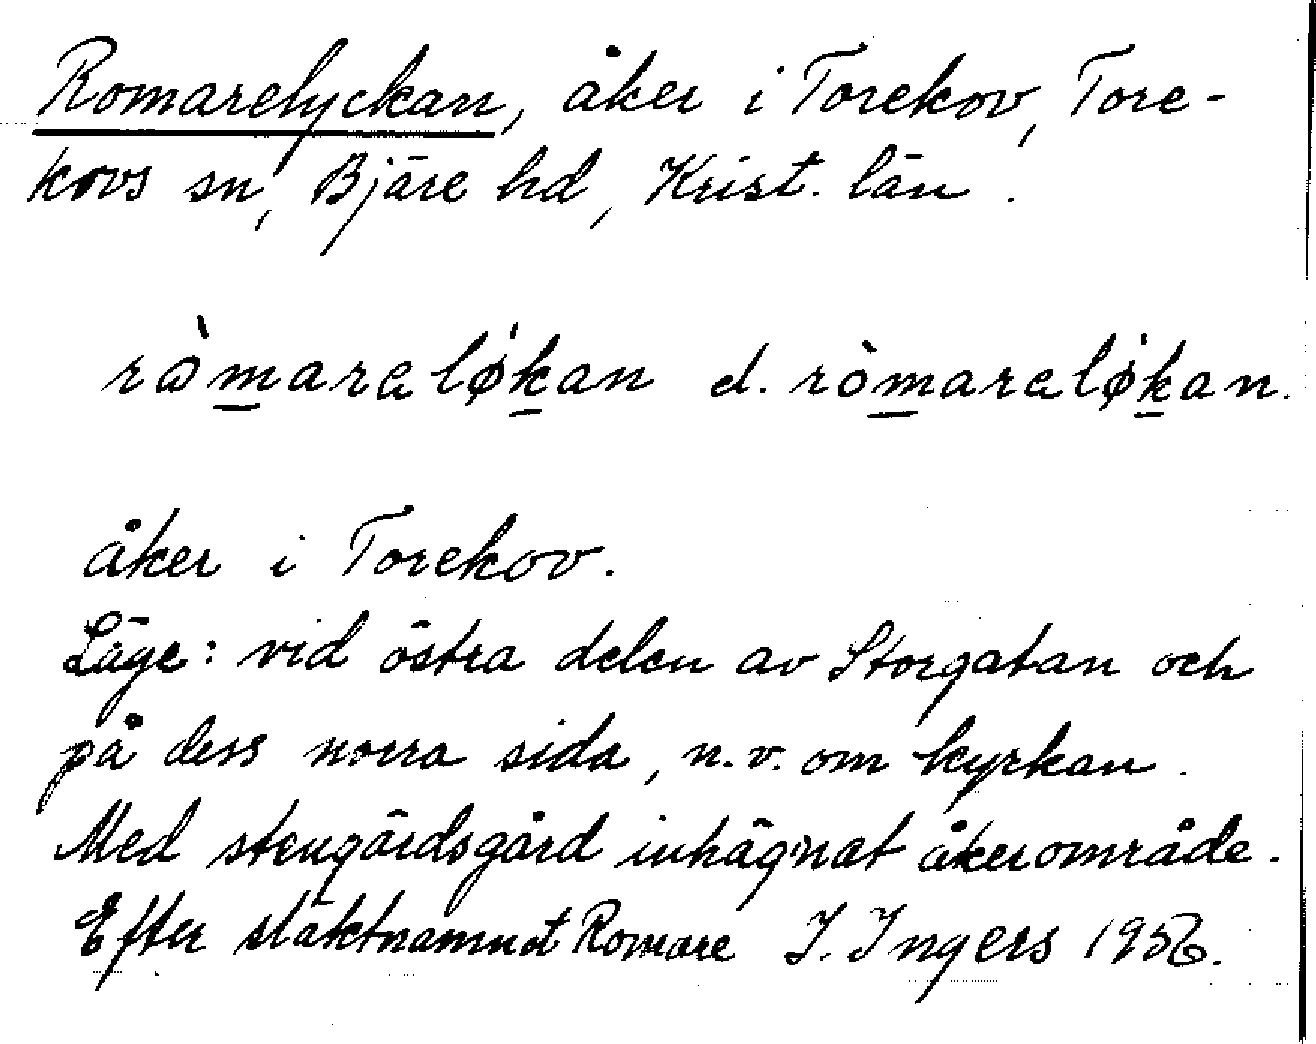 Romarelyckan, åker i Torekov, Tore-
kovs sn, Bjäre hd, Krist. län.
ròmaraløkan el. ròmaraløkan.
åker i Torekov.
Läge: vid östra delen av Storgatan och
på dess norra sida, n.v. om kyrkan.
Med stengärdsgård inhägnat åkerområde.
Efter släktnamnet Romare I. Ingers 1956.